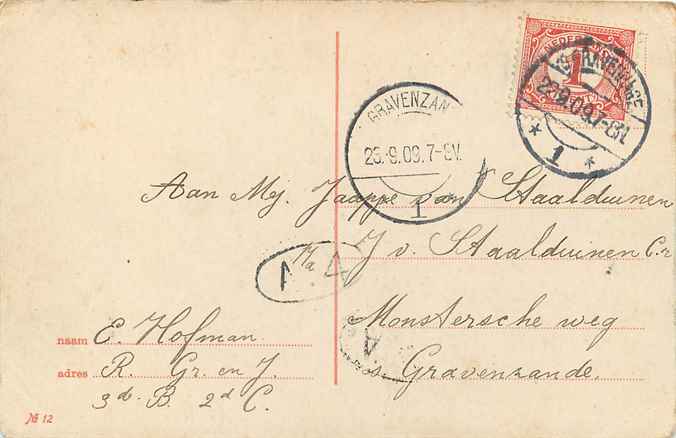 NEDERLAND
1
'S GRAVENHAGE
22.9.09.7-8N.
* 1 *
GRAVENZAN
23.-9.09.7-8V.
1 *
Aan Mej. Jaapje van Staalduinen
J v. Staalduinen C.z
Monstersche weg
s. Gravenzande.
naam E. Hofman
adres R. Gr. en J.
3d. B. 2d C.
№ 12